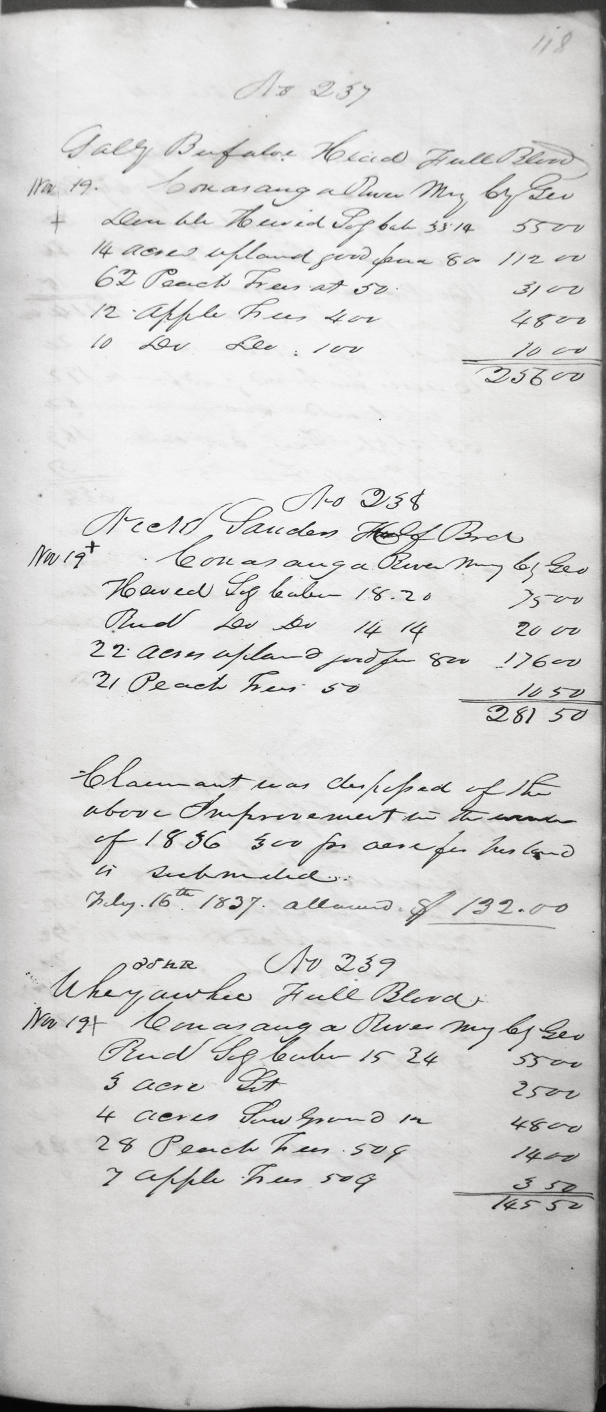 118
No 237
Bufaloe Head Full Blood
Nov 19. Conasauga River Mry Cy Geo
+ Double Hewed Log 5500
14 acres upland good fence 80 11200
62 Peach Trees at 50. 3100
12 Apple Trees 400 4800
10 Do Do. 100 1000
25600
No 238
Sanders Half Bred
Nov 19 + Conasauga River Mry Cy Geo
Hewed Log Cabin 18.20 7500
Rud Do Do 14 14 2000
22 acres upland good fen 800 17600
21 Peach Trees 50 1050
281 50
Claimant was disposed of the
above Improvement in the
of 1836 300 pr acre for his land
is
Feby. 16th 1837. allowed $ 132.00
No 239
Full Blood
Nov 19 + Conasauga River Mry Cy Geo
Rud Log Cabin 15 24 5500
3 acre Lot 2500
4 acres Low Ground 12 4800
28 Peach Trees. 50 1400
7 apple Trees 50 350
145 50